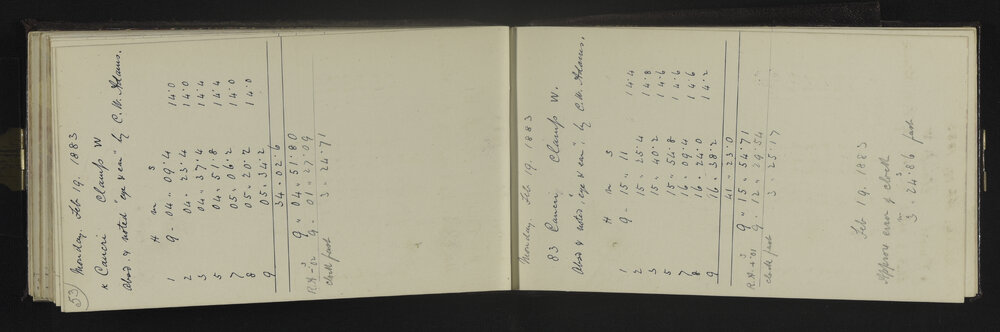 53
Monday. Feb 19. 1883
κ Cancri Clamp W
Obsd. & noted "eye & ear" by C. W. Adams.
H m s
1 9 . 04 . 09.4 14.0
2 04 . 23.4 14.0
3 04 . 37.4 14.4
5 04 . 51.8 14.4
7 05 . 06.2 14.0
8 05 . 20.2 14.0
9 05 . 34.2
34 . 02.6
9 " 04 " 51.80
R.A. 9 . 01 " 27.09
clock fast 3 . 24.71
Monday. Feb. 19. 1883
83 Cancri Clamp W.
Obsd & noted, "eye & ear", by C. W. Adams.
H m s
1 9 . 15 " 11 14.4
2 15 " 25.4 14.8
3 15 . 40.2 14.6
5 15 . 54.8 14.6
7 16 . 09.4 14.6
8 16 . 24.0 14.2
9 16 . 38.2
41 . 23.0
9 " 15 " 54.71
R.A. 9 . 12 " 29.54
clock fast 3 . 25.17
Feb 19. 1883
Approx error of clock
m s
3 . fast